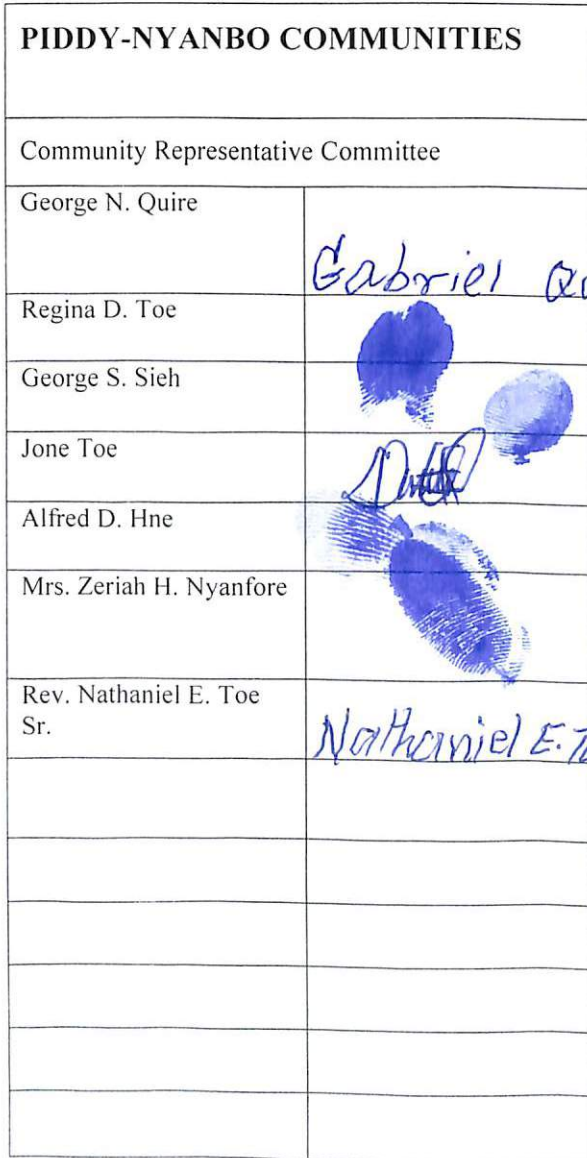 PIDDY-NYANBO COMMUNITIES
Community Representative Committee
George N. Quire
Gabriel
Regina D. Toe
George S. Sieh
Jone Toe
Alfred D. Hne
Mrs. Zeriah H. Nyanfore
Rev. Nathaniel E. Toe
Sr.
Nathaniel E.